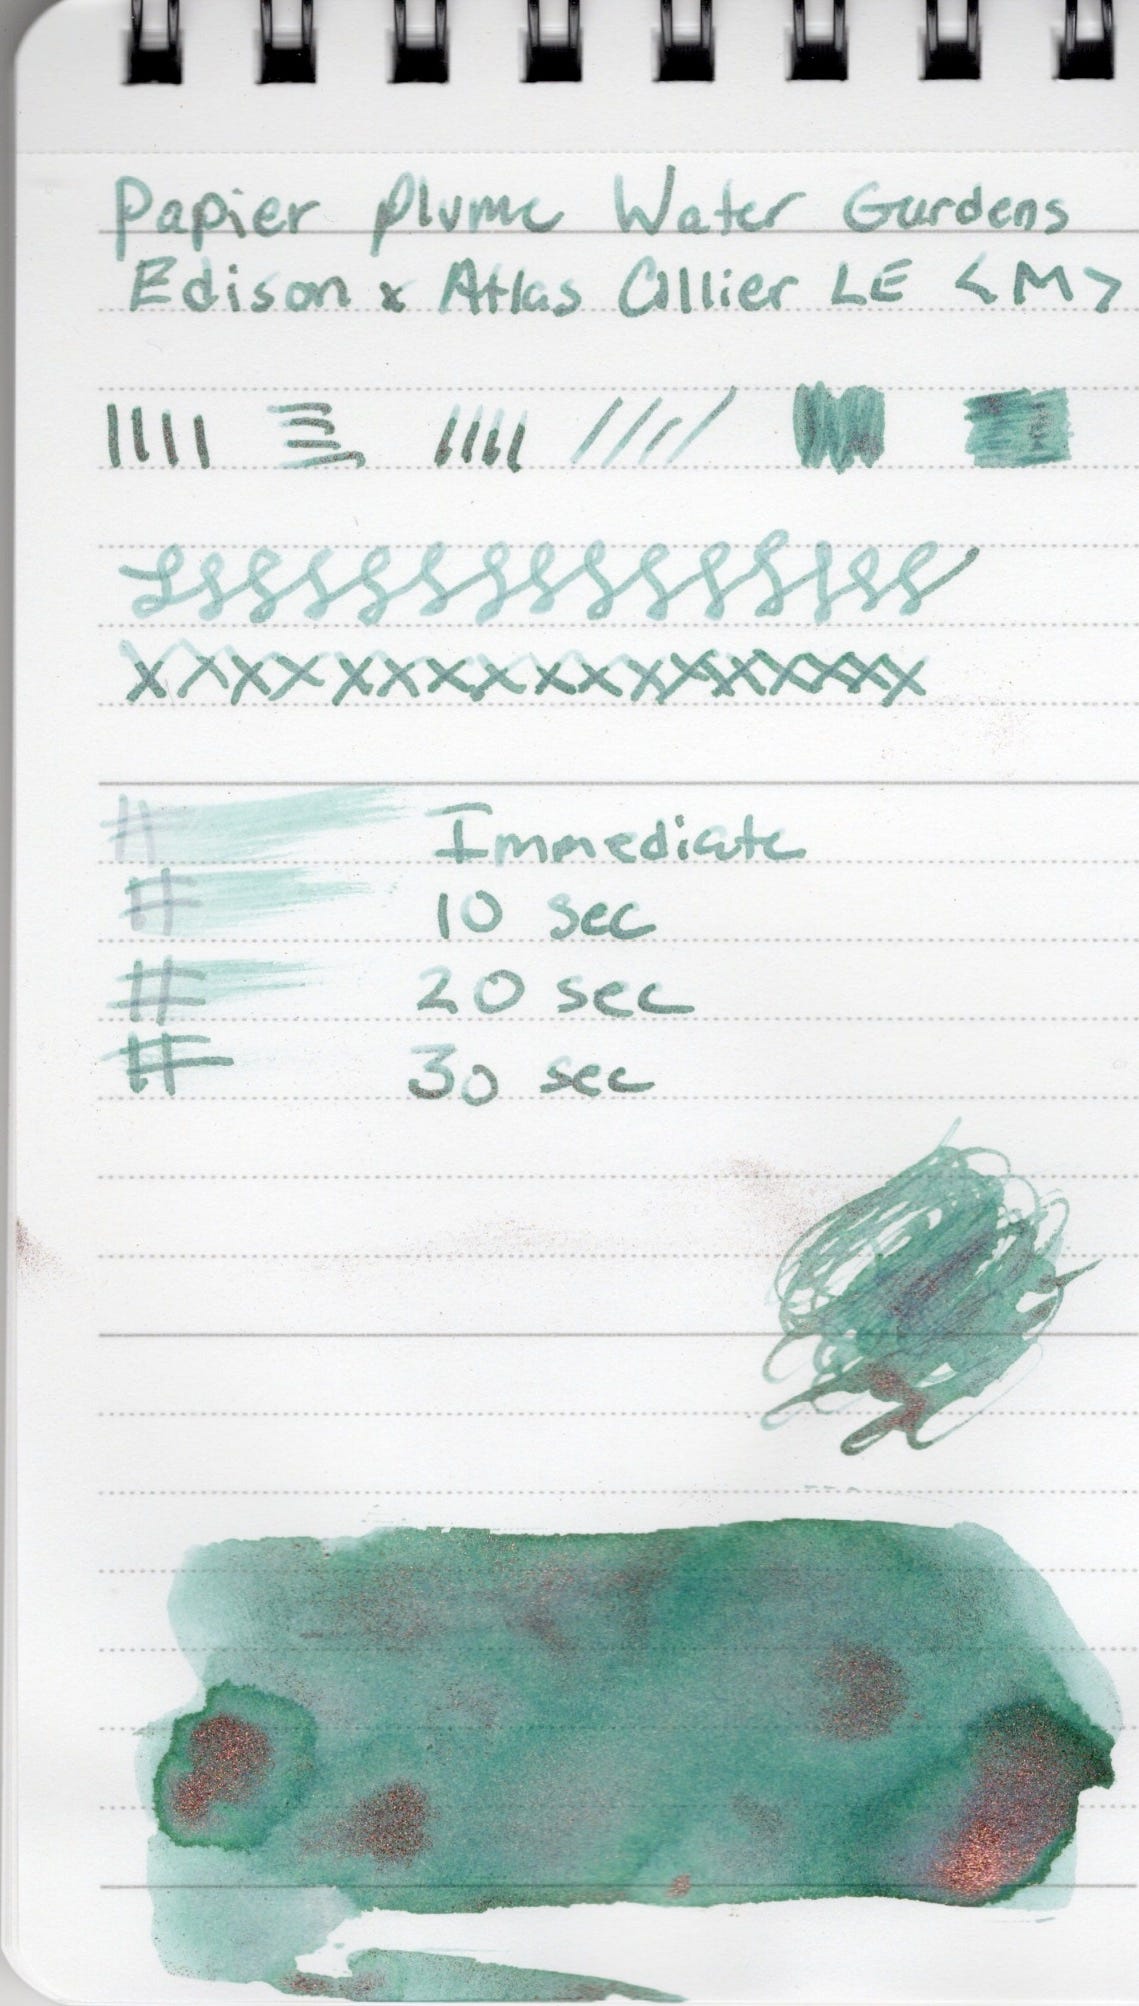 Papier Plume Water Gardens
Edison x Atlas Collier LE <M>
Immediate
10 sec
20 sec
30 sec